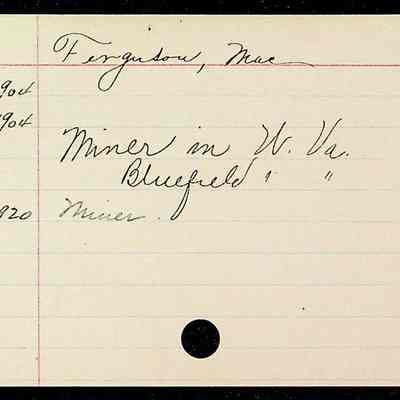 Ferguson, Mac
904
904
Miner in W. Va.
Bluefield " "
920 Miner.